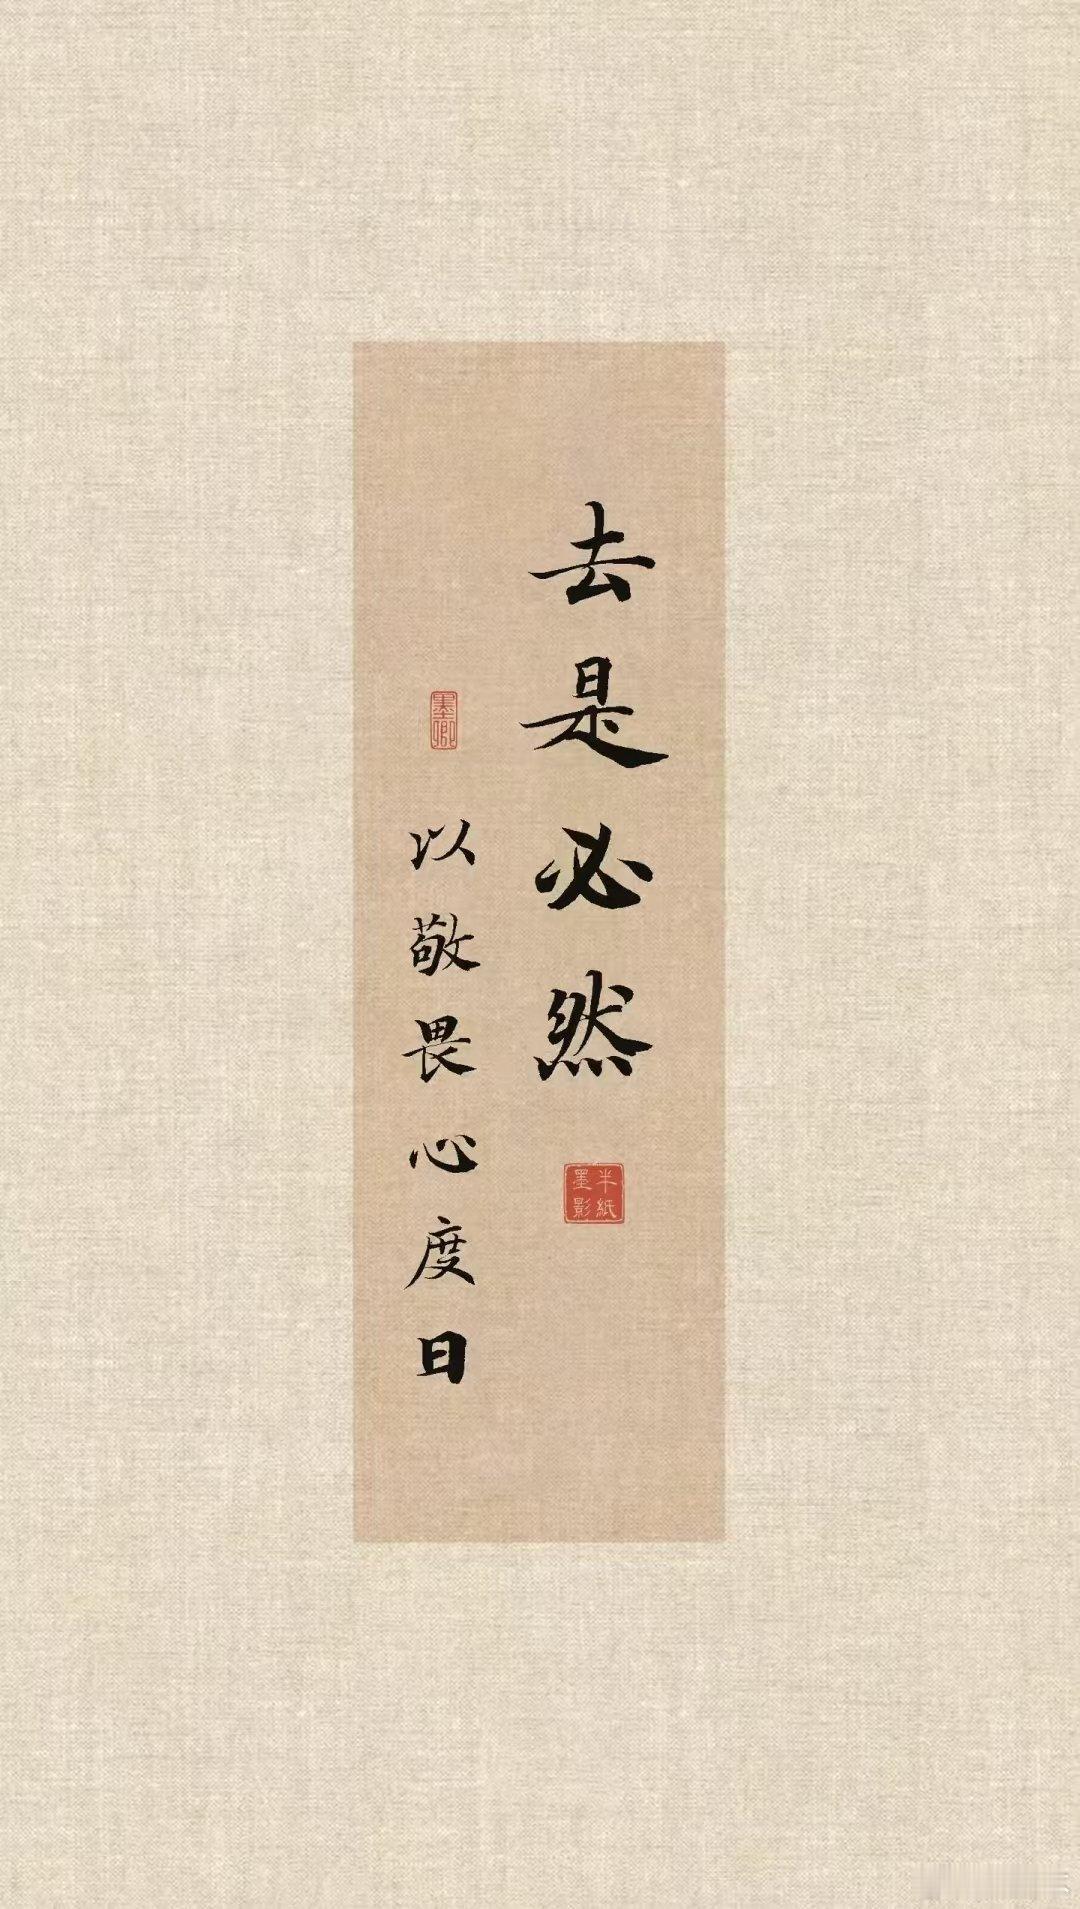 去是必然
半紙
墨影
墨卿
以敬畏心度日